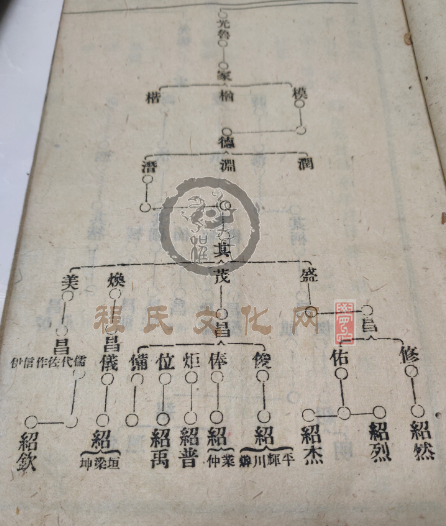 元魯
家
模 楷 楷
德
潤 淵 潛
其
盛 茂 煥 美
昌 昌 昌 昌
程氏文化网
修 佑 俊 俸 炬 位 備 儀 儒代佐作信伊
紹然 紹烈 紹杰 紹 紹 紹普 紹禹 紹 紹欽
平輝川 業仲 垣梁坤